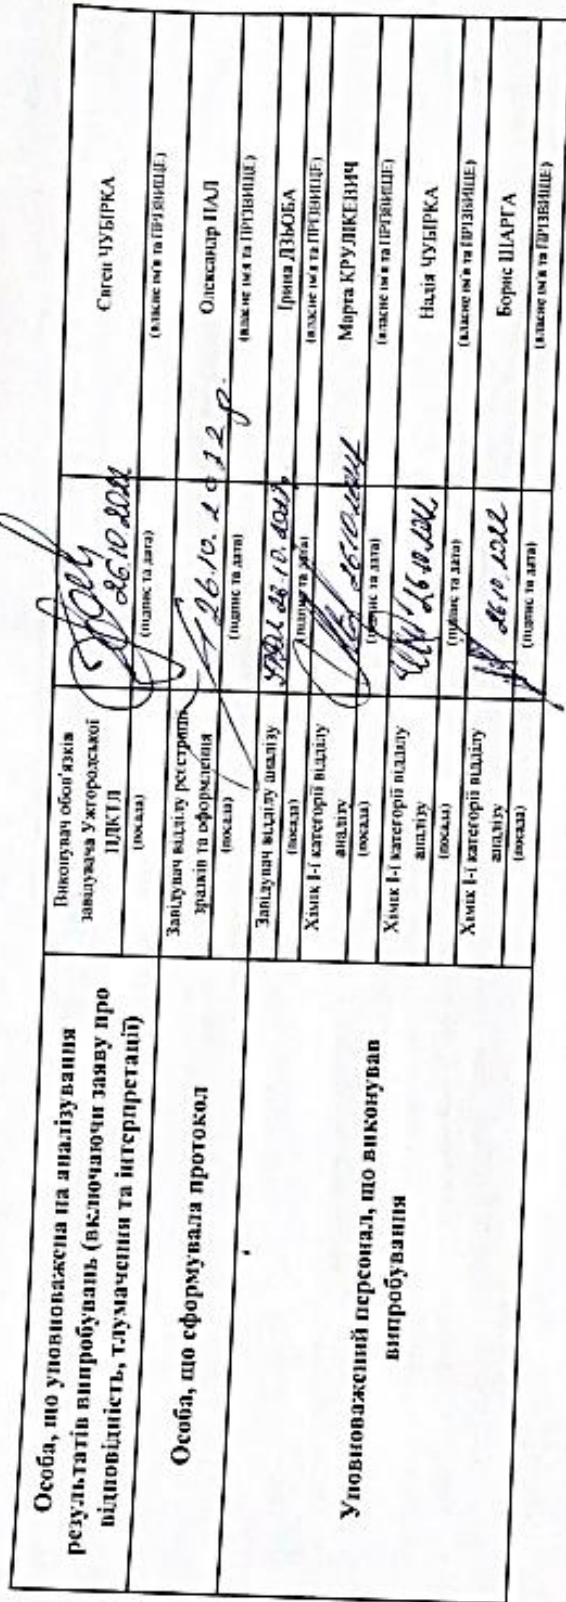 Особа, що уповноважена на аналізування
результатів випробувань (включаючи заяву про
відповідність, тлумачення та інтерпретації)
Виконувач обов'язків
завідувача Ужгородської
ПДКТЛ
(посада)
26.10.2022
(підпис та дата)
Євген ЧУБІРКА
(власне ім'я та ПРІЗВИЩЕ)
Особа, що сформувала протокол
Завідувач відділу реєстрації
зразків та оформлення
(посада)
26.10.2022 р.
(підпис та дата)
Олександр ПАЛ
(власне ім'я та ПРІЗВИЩЕ)
Уповноважений персонал, що виконував
випробування
Завідувач відділу аналізу
(посада)
26.10.2022р.
(підпис та дата)
Ірина ДЗЬОБА
(власне ім'я та ПРІЗВИЩЕ)
Хімік І-ї категорії відділу
аналізу
(посада)
26.10.2022
(підпис та дата)
Марта КРУЛІКЕВИЧ
(власне ім'я та ПРІЗВИЩЕ)
Хімік І-ї категорії відділу
аналізу
(посада)
26.10.2022
(підпис та дата)
Надія ЧУБІРКА
(власне ім'я та ПРІЗВИЩЕ)
Хімік І-ї категорії відділу
аналізу
(посада)
26.10.2022
(підпис та дата)
Борис ШАРГА
(власне ім'я та ПРІЗВИЩЕ)